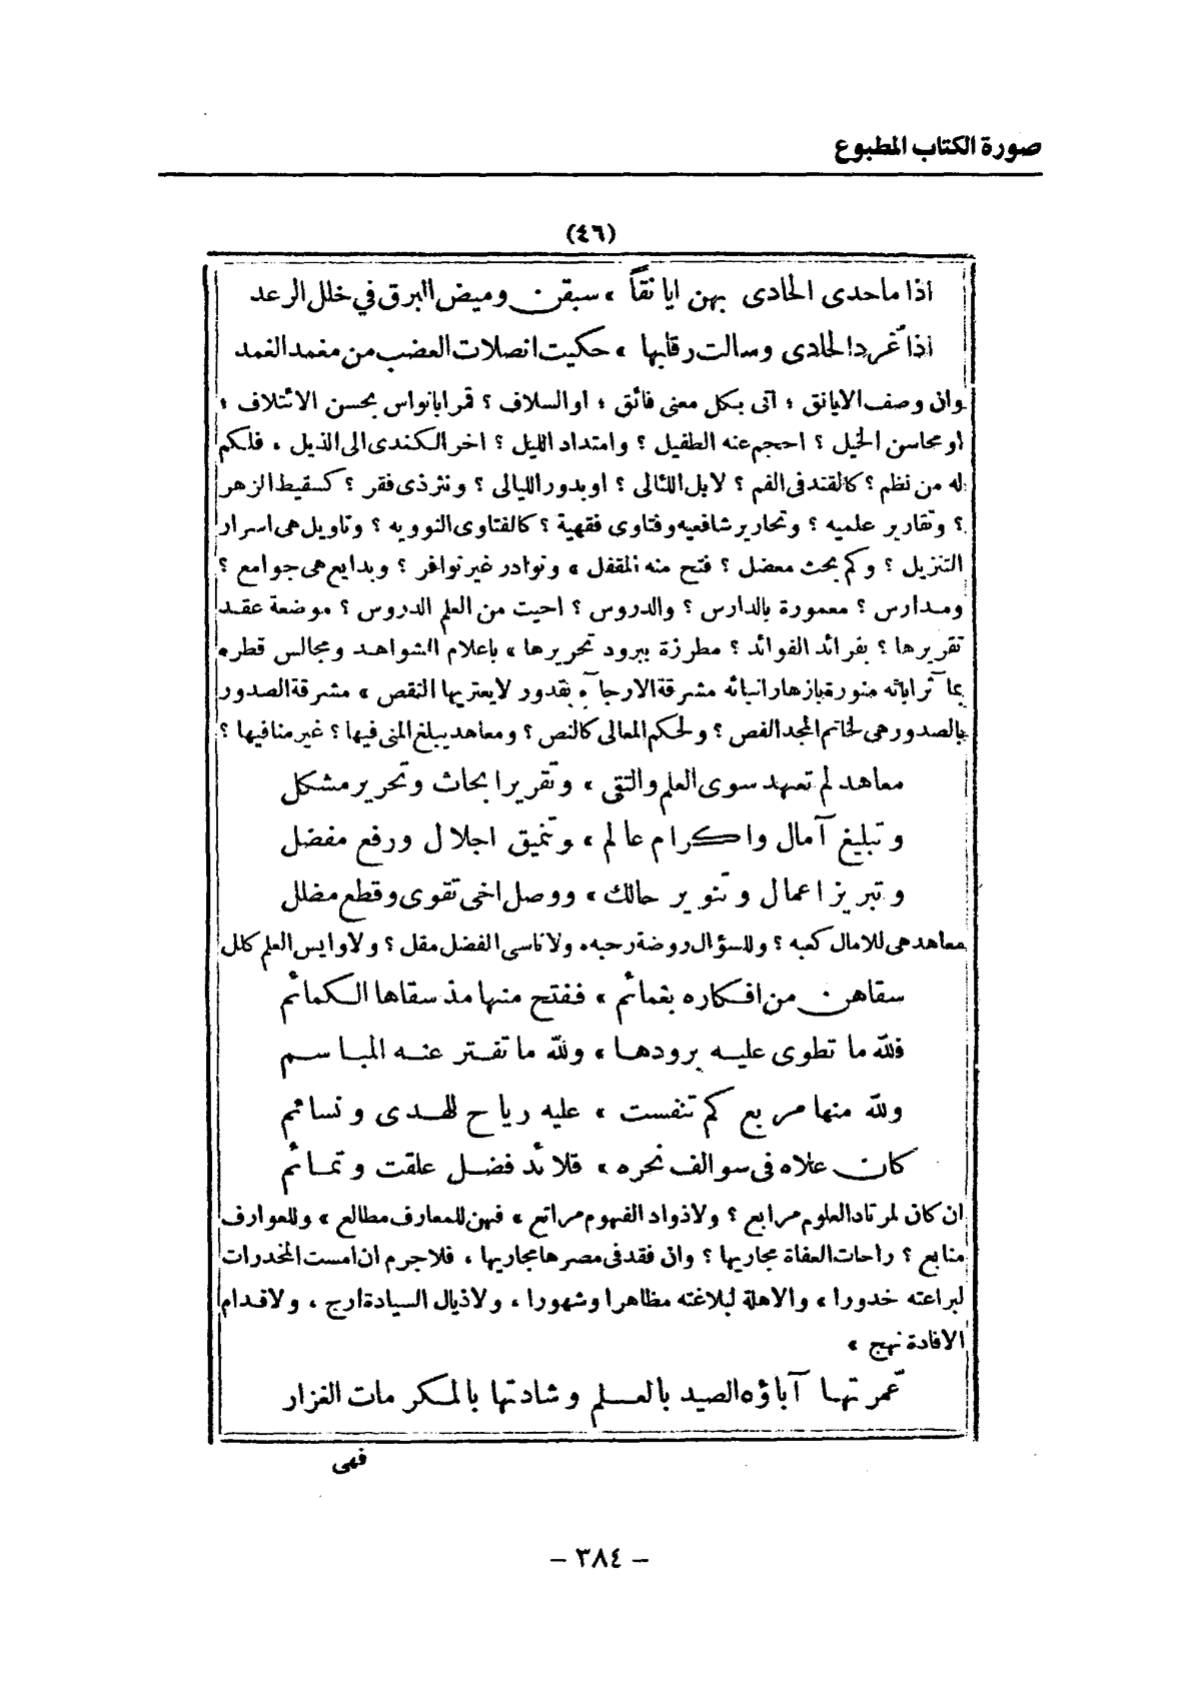 صورة الكتاب المطبوع
(٤٦)
اذا ماحدى الحادى بهن ايانقاً ٭ سبقن وميض البرق في خلل الرعد
اذا غّرد الحادى وسالت رقابها ٭ حكيت انصلات العضب من مغمد الغمد
وان وصف الايانق ؛ اتى بكل معنى فائق ؛ او السلاف ؟ قمر ابانواس بحسن الائتلاف ؛
او محاسن الخيل ؟ احجم عنه الطفيل ؟ وامتداد الليل ؟ اخر الكندى الى الذيل ، فلكم
له من نظم ؟ كالقند فى الفم ؟ لا بل اللئالى ؟ او بدور الليالى ؟ ونثر ذى فقر ؟ كسقيط الزهر
؟ وتقارير علميه ؟ وتحارير شافعيه وفتاوى فقهية ؟ كالفتاوى النوويه ؟ وتاويل هى اسرار
التنزيل ؟ وكم بحث معضل ؟ فتح منه المقفل ٭ ونوادر غير نوافر ؟ وبدايع هى جوامع ؟
ومدارس ؟ معمورة بالدارس ؟ والدروس ؟ احيت من العلم الدروس ؟ موضعة عقد
تقريرها ؟ بفرائد الفوائد ؟ مطرزة ببرود تحريرها ٭ باعلام الشواهد ومجالس قطره
بمآثر اباته منورة بازهار انبائه مشرقة الارجآء بقدور لا يعتريها النقص ٭ مشرقة الصدور
بالصدور هى لخاتم المجد الفص ؟ ولحكم المعالى كالنص ؟ ومعاهد يبلغ المنى فيها ؟ غير منافيها ؟
معاهد لم تعهد سوى العلم والتقى ٭ وتقرير ابحاث وتحرير مشكل
وتبليغ آمال واكرام عالم ٭ وتنميق اجلال ورفع مفضل
وتبريز اعمال وتنوير حالك ٭ ووصل اخى تقوى وقطع مضلل
معاهد هى للامال كعبه ؟ وللسؤال روضة رحبه ٭ ولا ناسى الفضل مقل ؟ ولاوايس العلم كلل
سقاهن من افكاره بغمائم ٭ ففتح منها مذ سقاها الكمائم
فلله ما تطوى عليه برودها ٭ ولله ما تفتر عنه المباسم
ولله منها مربع كم تنفست ٭ عليه رياح للهدى ونسائم
كان علاه فى سوالف نحره ٭ قلائد فضل علقت وتمائم
ان كان لمرتاد العلوم مرابع ؟ ولاذواد الفهوم مراتع ٭ فهن للمعارف مطالع ٭ وللعوارف
منابع ؟ راحات العفاة مجاريها ؟ وان فقد فى مصرها مجاريها ، فلا جرم ان امست المخدرات
لبراعته خدورا ٭ والاهلة لبلاغته مظاهرا وشهورا ، ولاذيال السيادة ارج ، ولاقدام
الافادة نهج ٭
عمّرتها آباؤه الصيد بالعلم وشادتها بالمكرمات الغزار
فهى
– ٣٨٤ –